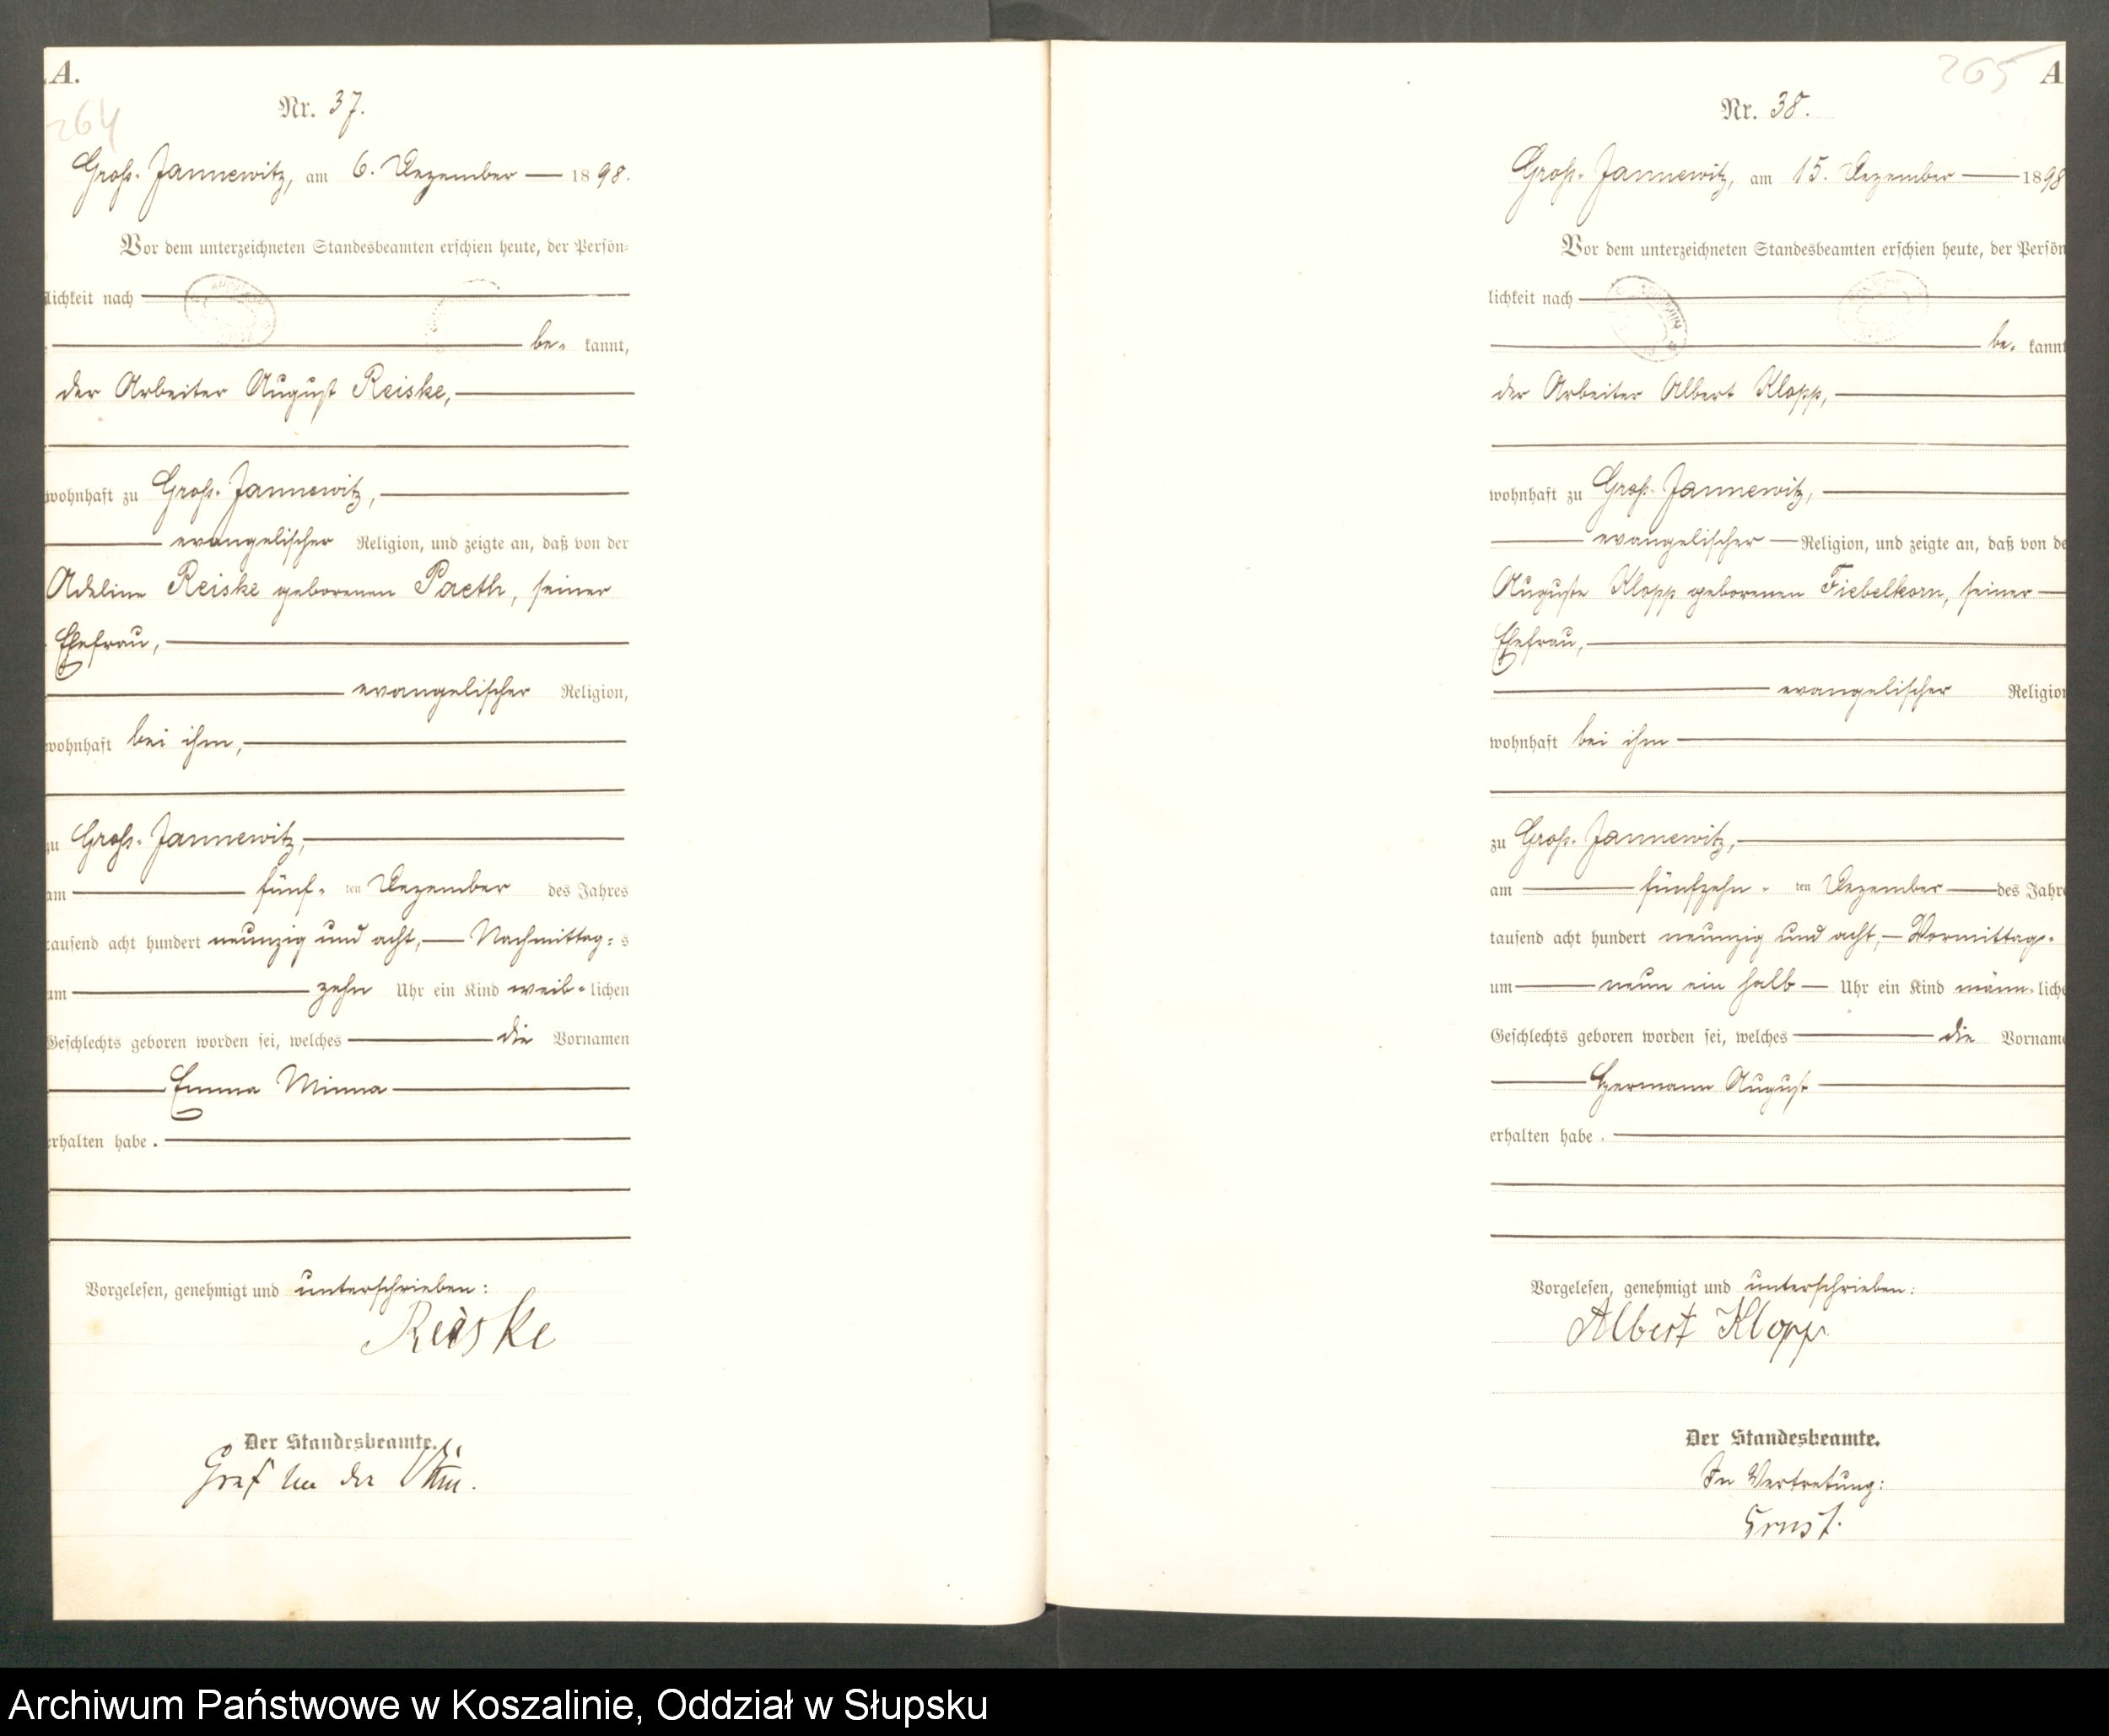 A.
264
Nr. 37.
Groß-Jannewitz, am 6. Dezember 1898.
Vor dem unterzeichneten Standesbeamten erschien heute, der Persön-
lichkeit nach
be- kannt,
der Arbeiter August Reiske,
wohnhaft zu Groß-Jannewitz,
evangelischer Religion, und zeigte an, daß von der
Adeline Reiske geborenen Paeth, seiner
Ehefrau,
evangelischer Religion,
wohnhaft bei ihm,
zu Groß-Jannewitz,
am fünf- ten Dezember des Jahres
tausend acht hundert neunzig und acht, Nachmittag-s
um zehn Uhr ein Kind weib-lichen
Geschlechts geboren worden sei, welches die Vornamen
Emma Minna
erhalten habe.
Vorgelesen, genehmigt und unterschrieben:
Reiske
Der Standesbeamte.
Graf von der
265
A
Nr. 38.
Groß-Jannewitz, am 15. Dezember 1898
Vor dem unterzeichneten Standesbeamten erschien heute, der Persön
lichkeit nach
be- kannt
der Arbeiter Albert Klopp,
wohnhaft zu Groß-Jannewitz,
evangelischer Religion, und zeigte an, daß von de
Auguste Klopp geborenen Fiebelkorn, seiner
Ehefrau,
evangelischer Religion
wohnhaft bei ihm
zu Groß-Jannewitz,
am fünfzehn- ten Dezember des Jahre
tausend acht hundert neunzig und acht, Vormittag-
um neun ein halb Uhr ein Kind männ-liche
Geschlechts geboren worden sei, welches die Vorname
Hermann August
erhalten habe.
Vorgelesen, genehmigt und unterschrieben:
Albert Klopp
Der Standesbeamte.
In Vertretung:
Ernst.
Archiwum Państwowe w Koszalinie, Oddział w Słupsku